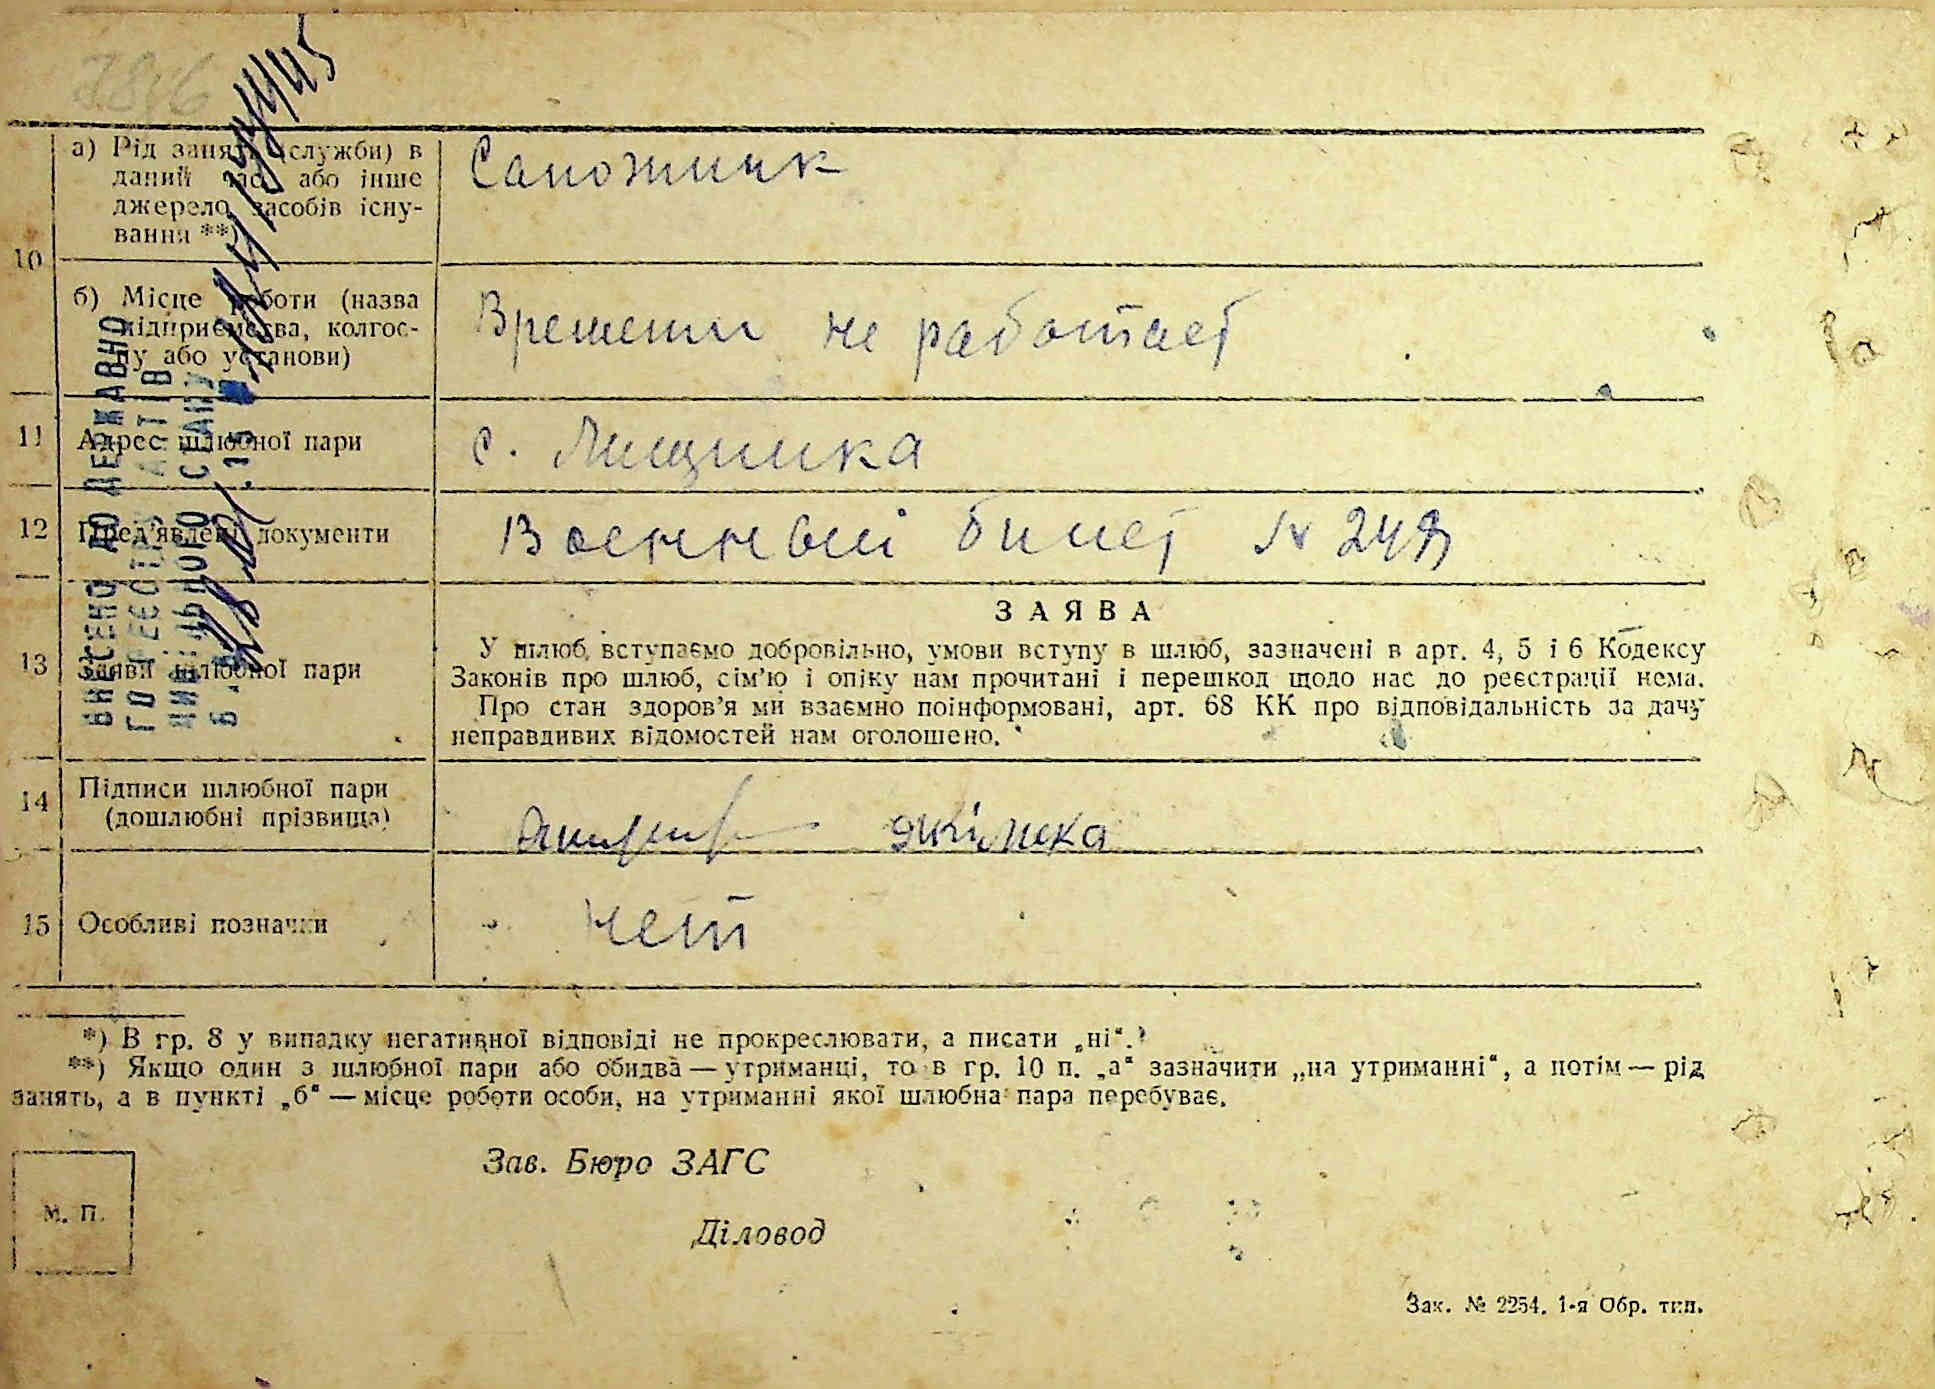 а) Рід занять (служби) в
даний час або інше
джерело засобів існу-
вання **)
Сапожник
10
б) Місце роботи (назва
підприємства, колгос-
пу або установи)
Времени не работает
11 Адрес шлюбної пари
с. Мищинка
12 Пред'явлені документи
Военный билет №
13 Заяви шлюбної пари
ЗАЯВА
У шлюб вступаємо добровільно, умови вступу в шлюб, зазначені в арт. 4, 5 і 6 Кодексу
Законів про шлюб, сім'ю і опіку нам прочитані і перешкод щодо нас до реєстрації нема.
Про стан здоров'я ми взаємно поінформовані, арт. 68 КК про відповідальність за дачу
неправдивих відомостей нам оголошено.
14 Підписи шлюбної пари
(дошлюбні прізвища)
15 Особливі позначки
нет
*) В гр. 8 у випадку негативної відповіді не прокреслювати, а писати „ні“.
**) Якщо один з шлюбної пари або обидва — утриманці, то в гр. 10 п. „а“ зазначити „на утриманні“, а потім — рід
занять, а в пункті „б“ — місце роботи особи, на утриманні якої шлюбна пара перебуває.
Зав. Бюро ЗАГС
М. П.
Діловод
Зак. № 2254. 1-я Обр. тип.
ВНЕСЕНО ДО ДЕРЖАВНО
ГО РЕЄСТРУ АКТІВ
ЦИВІЛЬНОГО СТАНУ